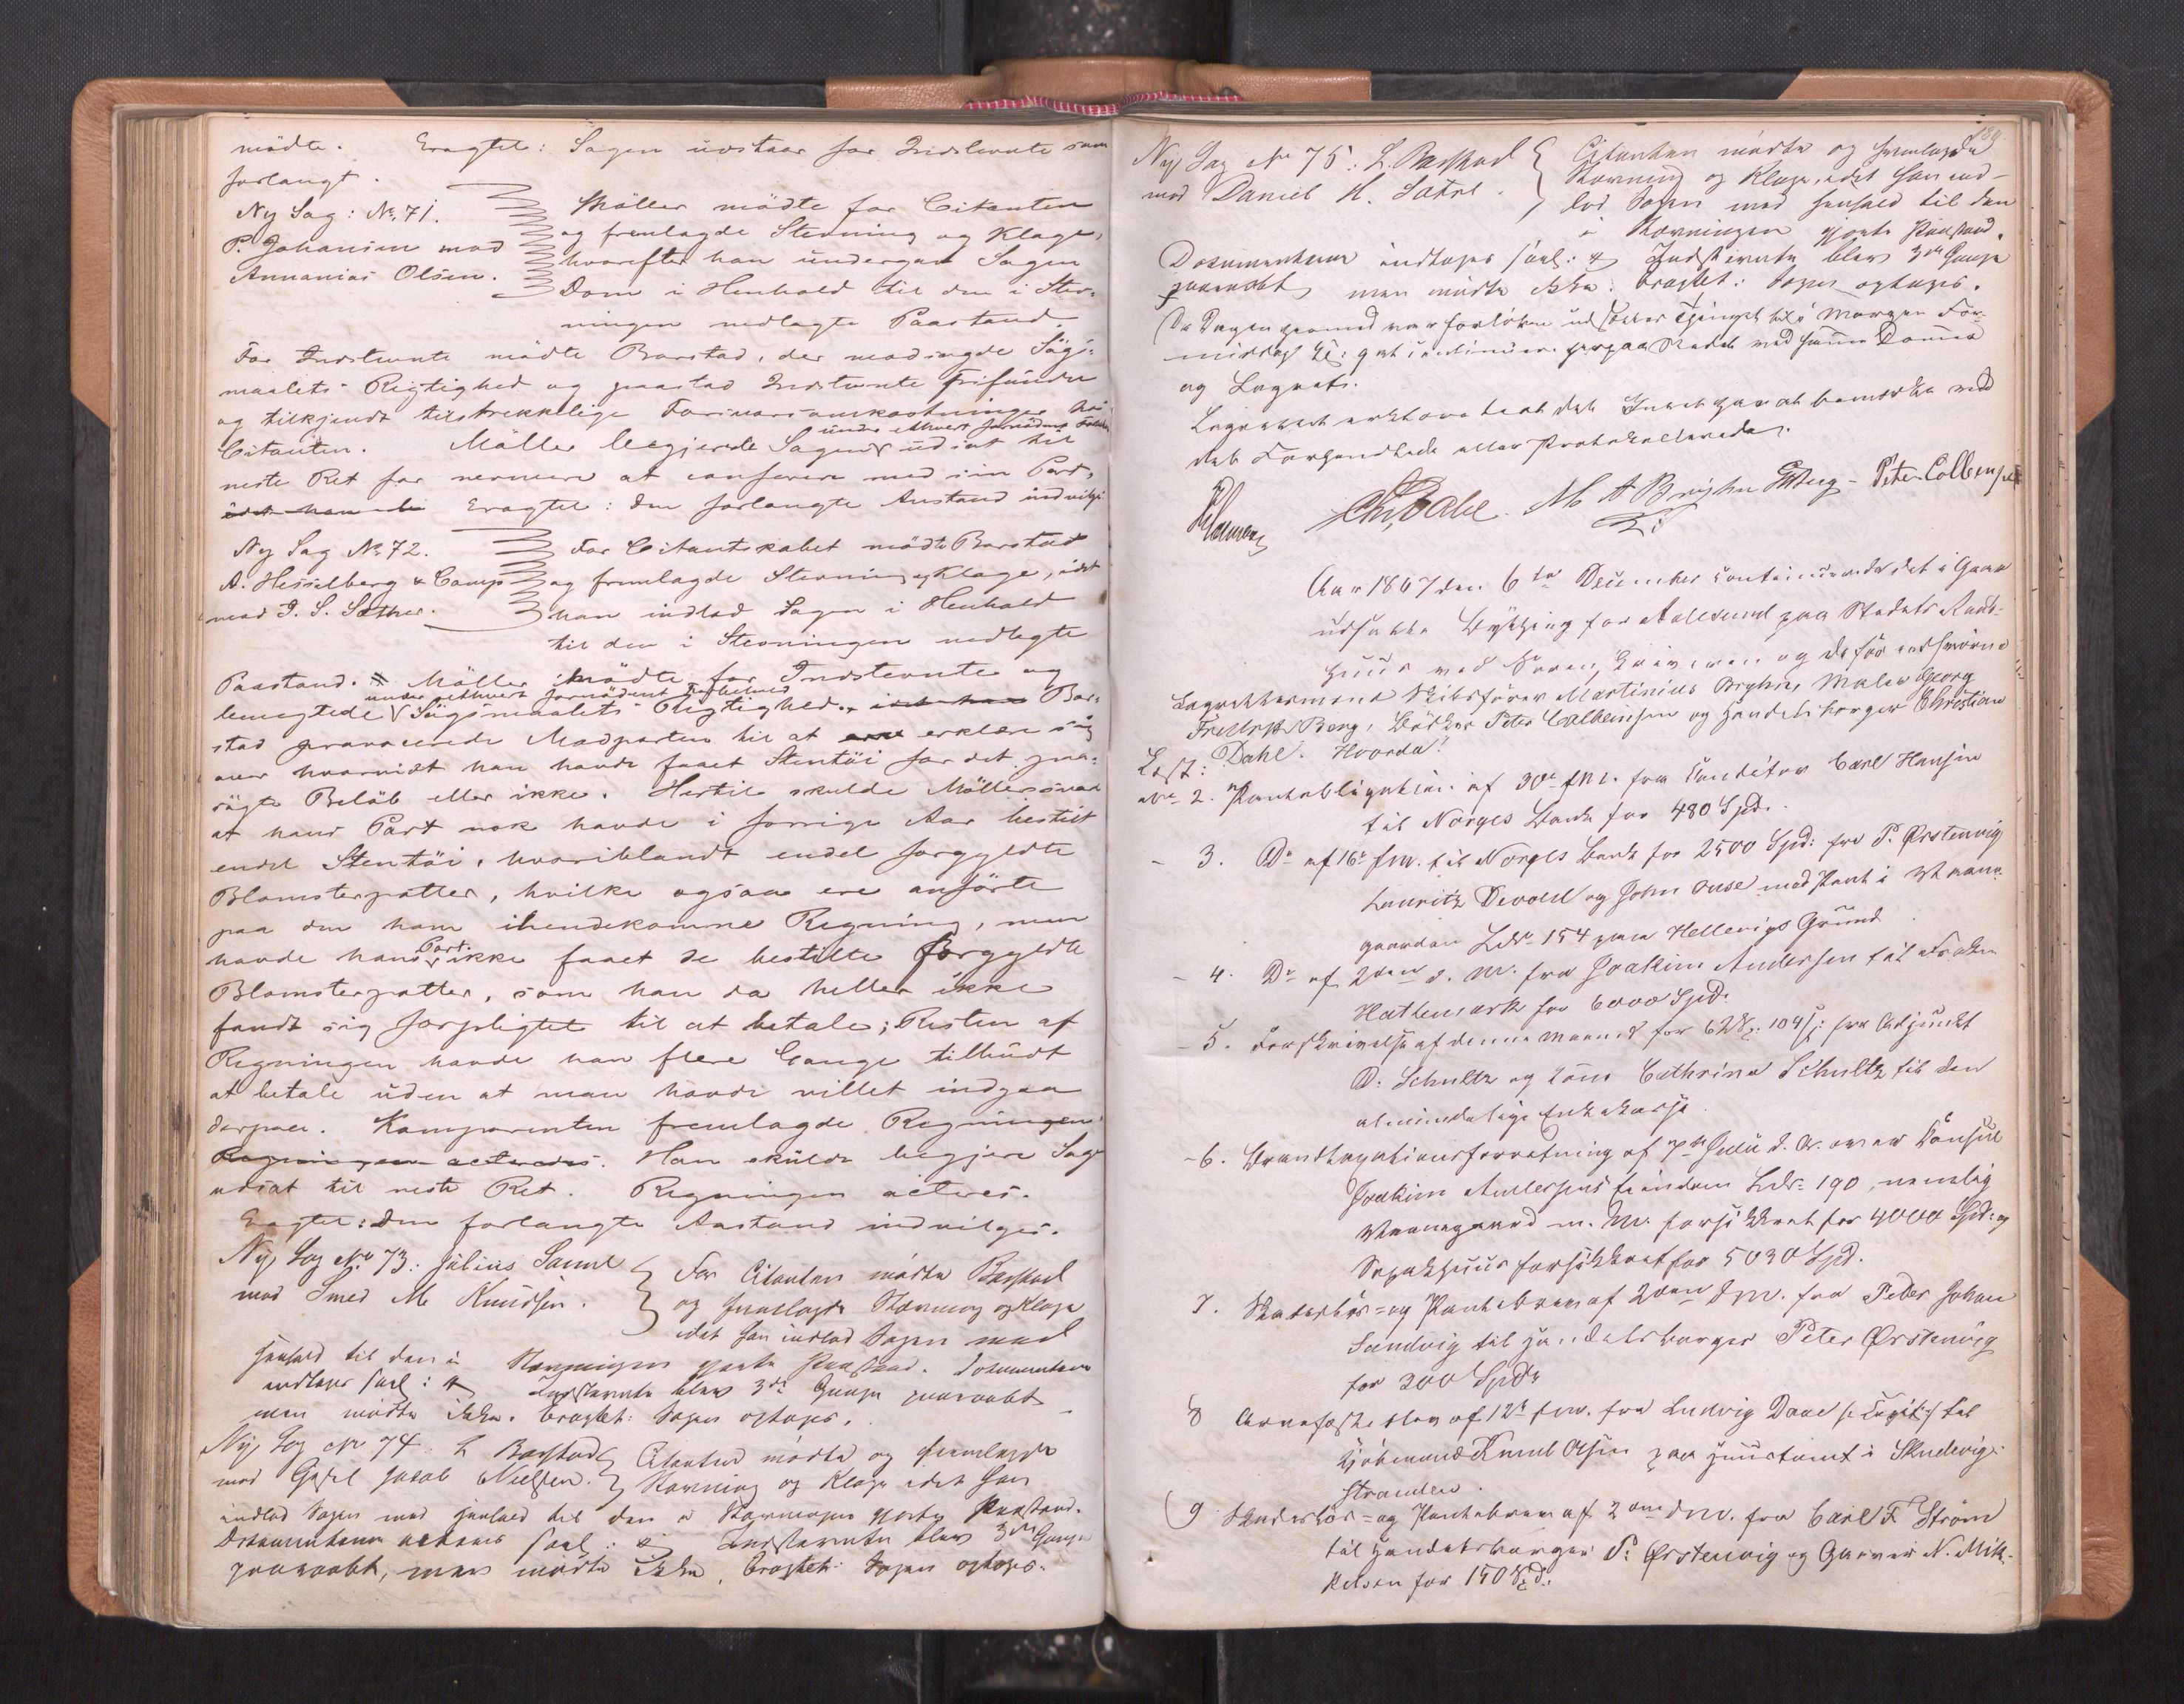 mödte. Eragtet: Sagen udstaar for Indstevnte som
forlangt.
Ny Sag: No. 71.
P. Johansen mod
Annanias Olsen.
Möller mödte for Citanten
og fremlagde Stevning og Klage,
hvorefter han undergav Sagen
Dom i Henhold til den i Stev-
ningen nedlagte Paastand.
For Indstevnte mödte Barstad, der modsagde Sögs-
maalets Rigtighed og paastod Indstevnte frifunden
og tilkjendt tilstrekkelige Forsvarsomkostninger hos
Citanten. Möller begjerde Sagen under ethvert fornödent udsat til
neste Ret for nermere at conferere med sin Part,
idet han Eragtet: den forlangte Anstand indvilges
Ny Sag No. 72.
A. Hesselberg & Comp
mod J. S. Sæther.
For Citantskabet mödte Barstad
og fremlagde Stevning og Klage, idet
han indlod Sagen i Henhold
til den i Stevningen nedlagte
Paastand. Möller mödte for Indstevnte og
benegtede under ethvert fornödent Forbehold Sögsmaalets Rigtighed. idet han Bar-
stad provocerede Modparten til at erklære sig
over hvorvidt han havde faaet Stentöi for det paa-
sögte Belöb eller ikke. Hertil skulde Möller svare
at hans Part nok havde i forrige Aar bestilt
endel Stentöi, hvoriblandt endel forgyldte
Blomsterpotter, hvilke ogsaa ere anförte
paa den ham ihendekomne Regning, men
havde hans Part ikke faaet de bestilte forgyldte
Blomsterpotter, som han da heller ikke
fandt sig forpligtet til at betale; Resten af
Regningen havde han flere Gange tilbudt
at betale uden at man havde villet indgaa
derpaa. Komparenten fremlagde Regningen
Regningen acteredes. Han skulde begjere Sagen
udsat til neste Ret. Regningen acteres.
Eragtet: den forlangte Anstand indvilges.
Ny Sag No 73: Julius Sanne
mod Smed M. Knudsen.
For Citanten mödte Barstad
og fremlagde Stevning og Klage
idet han indlod Sagen med
Henhold til den i Stevningen gjorte Paastand. Dokumenterne
indtages saal: Indstevnte blev 3de Gange paaraabt
men mödte ikke. Eragtet: Sagen optages.
Ny Sag No 74: L Barstad
mod Gjest Jacob Nielsen.
Citanten mödte og fremlagde
Stevning og Klage idet han
indlod Sagen med Henhold til den i Stevningen gjorte Paastand.
Dokumenterne acteres saal: Indstevnte blev 3de Gange
paaraabt, men mödte ikke. Eragtet: Sagen optages.
Ny Sag No 75: L. Barstad
mod Daniel H. Satre.
Citanten mödte og fremlagde
Stevning og Klage, idet han ind-
lod Sagen med Henhold til den
i Stevningen gjorte Paastand.
Dokumenterne indtages saal: Indstevnte blev 3de Gange
paaraabt men mödte ikke. Eragtet: Sagen optages.
Da Dagen hermed var forlöben udsattes Thinget til i Morgen For-
middag Kl: 9 at continuere herpaa Stedet med samme Domme
og Lagret.
Lagrettet erklærede at det Intet havde at bemærke ved
det Forhandlede eller Protokollerede.
Chr. Dahl. M A Bryhn G Berg - Peter Colbensen
Aar 1867 den 6te December continueredes det i Gaar
udsatte Bything for Aalesund paa Stadets Raad-
huus med Soren, Skriveren og de för edsvorne
Lagrettesmend Skibsförer Martinius Bryhn, Maler Georg
Fredrik Berg, Bödker Peter Colbensen og Handelsborger Christian
Dahl. Hvorda:
Læst:
No 2. Pantobligation af 30te f.M. fra Conditor Carl Hansen
til Norges Bank for 480 Spd.
- 3. Do af 16de f.M. til Norges Bank for 2500 Spd: fra P. Ørstenvig
Lauritz Devold og John Ouse med Pant i Vaanin
gaarden LNr 154 paa Hellevigs Grund
- 4. Do af 2den d. M. fra Joakim Andersen til Fröken
Hattemark for 6000 Spd.
- 5. Forskrivelse af denne Maaned for 62 Spd: 104 s: fra Adjunkt
D. Schultz og Kone Cathrine Schultz til den
almindelige Enkekasse.
- 6. Brandtaxationsforretning af 7de Juli d. A. over Consul
Joakim Andersens Eiendom LNr 190, nemlig
Vaanegaard m. M. forsikkret for 4000 Spd: og
Søpakhuus forsikkret for 5030 Spd.
7. Skadeslös- og Pantebrev af 2den d.M. fra Peder Johan
Sandvig til Handelsborger Peter Ørstenvig
for 300 Spd
8 Arvefesteslov af 12te f.M. fra Ludvig Daae til
Kjöbmand Knud Olsen paa Huustomt i Skudevig-
stranden.
9 Skadeslös- og Pantebrev af 2den d.M. fra Carl F Ström
til Handelsborger P. Ørstenvig og Garver N. Mik-
kelsen for 150 Spd.